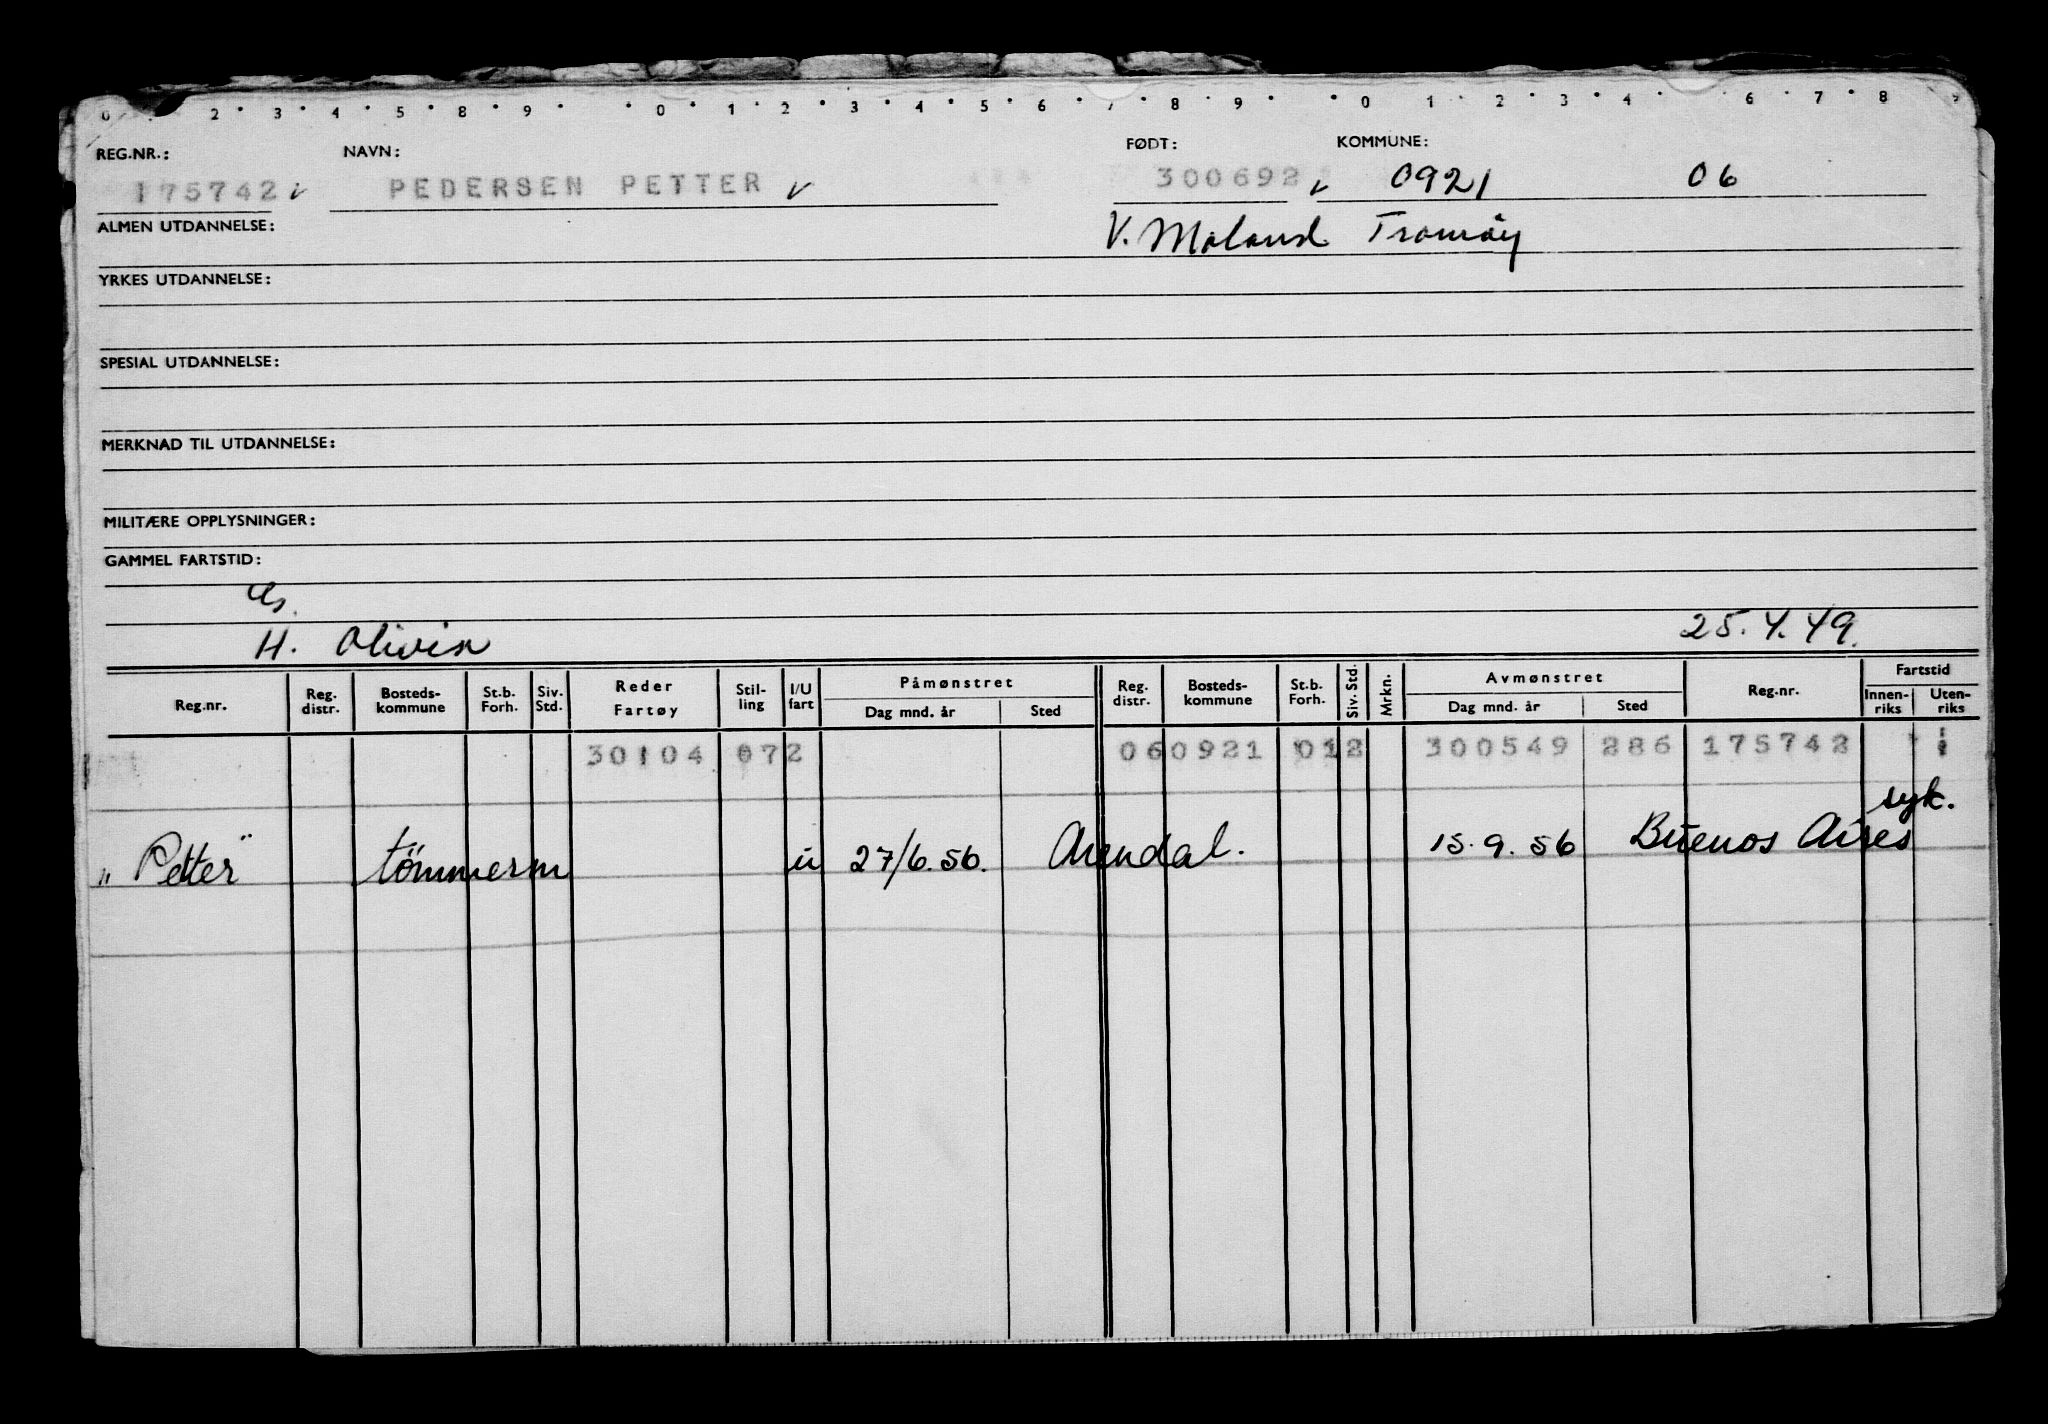 0 2 3 4 5 8 9 0 1 2 3 4 5 6 7 8 9 0 1 2 3 4 6 7 8 9
REG.NR.: NAVN: FØDT: KOMMUNE:
175742 v PEDERSEN PETTER v 300692 v 0921 06
ALMEN UTDANNELSE: V. Moland Tromöy
YRKES UTDANNELSE:
SPESIAL UTDANNELSE:
MERKNAD TIL UTDANNELSE:
MILITÆRE OPPLYSNINGER:
GAMMEL FARTSTID:
H. Olivin 25.4.49.
Reg.nr. Reg. distr. Bosteds-kommune St.b. Forh. Siv. Std. Reder Fartøy Stil-ling I/U fart Påmønstret Dag mnd. år Sted Reg. distr. Bosteds-kommune St.b. Forh. Siv. Std. Mrkn. Avmønstret Dag mnd. år Sted Reg.nr. Fartstid Innen-riks Uten-riks
30104 072 060921 012 300549 286 175742
syk.
"Petter" tömmerm u 27/6.56. Arendal. 15.9.56 Buenos Aires